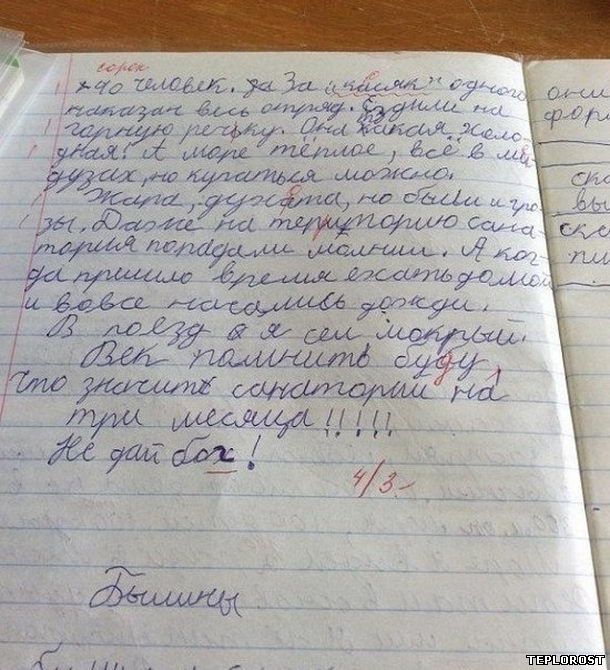 сорок
40 человек. да За "касяк" одного
наказан весь отряд. Ездили на
горную речьку. Она такая холо-
дная! А море тёплое, всё в ме-
дузах, но купаться можно.
Жара, духота, но были и гро-
зы. Даже на территорию сана-
тория попадали молнии. А ког-
да пришло время ехать домой
и вовсе начались дожди.
В поезд я сел мокрый.
Век помнить буду,
что значить санаторий на
три месяца!!!!!
Не дай бох!
4/3-
Былины
они
форм
ска
вы
ска
пи
TEPLOROST